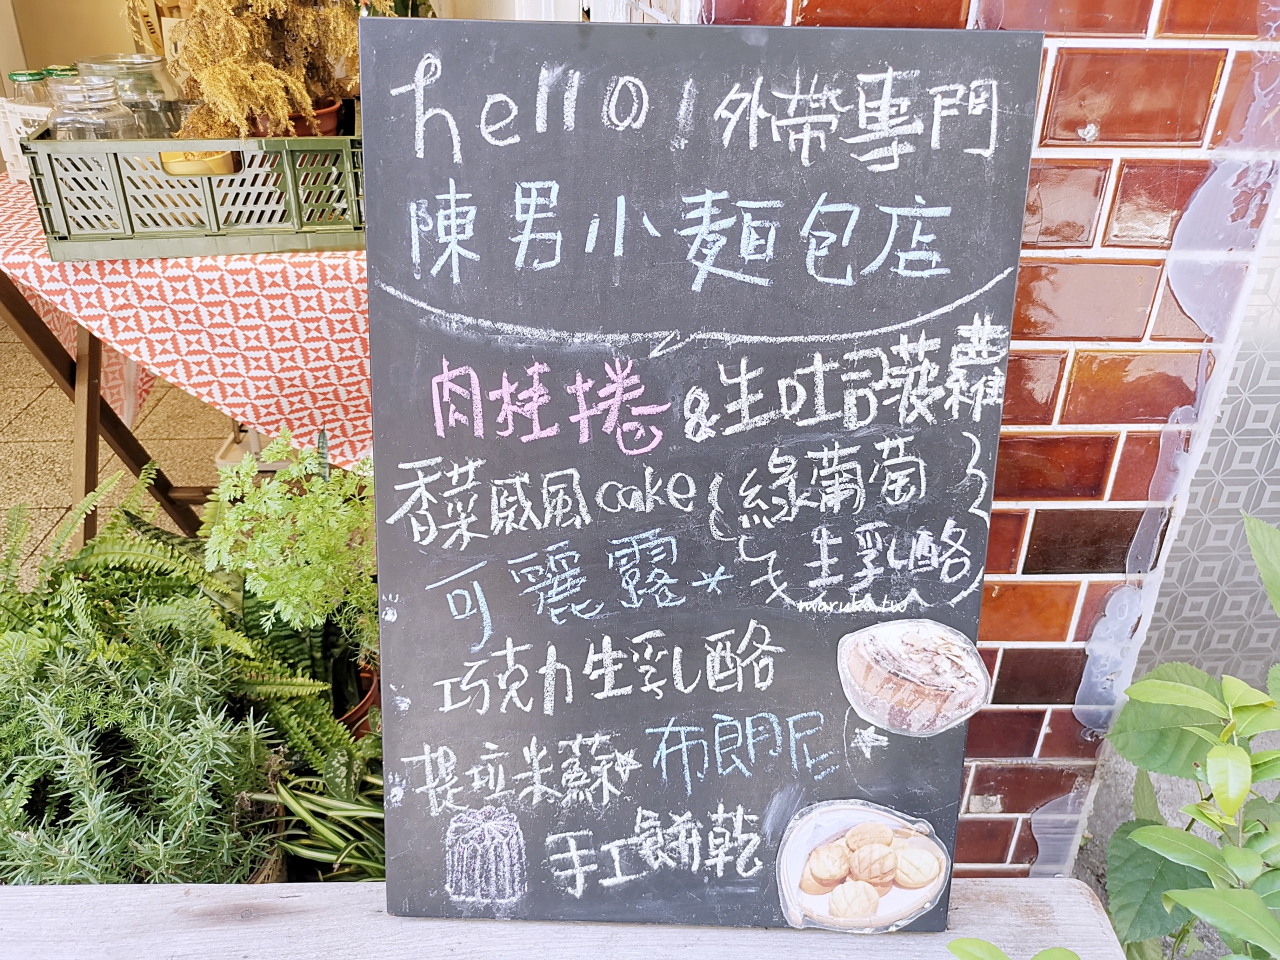 hello! 外帶專門
陳男小麵包店
肉桂捲 & 生吐司菠蘿
香菜戚風cake { 綠葡萄 }
生乳酪
可麗露*
maruko.tw
巧克力生乳酪
提拉米蘇* 布朗尼*
手工餅乾